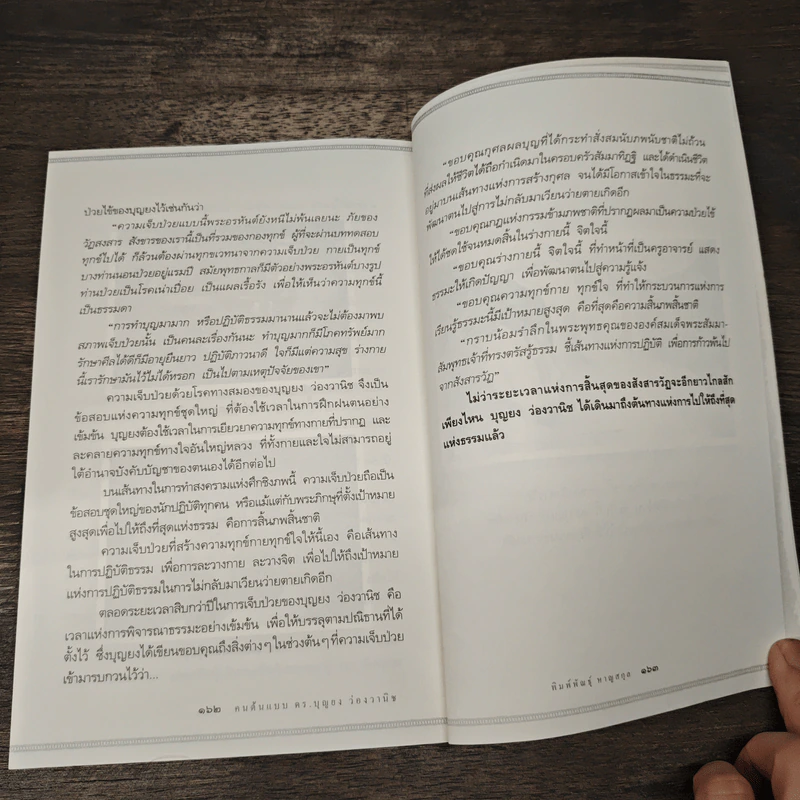 ป่วยไข้ของบุญยงไว้เช่นกันว่า
"ความเจ็บป่วยแบบนี้พระอรหันต์ยังหนีไม่พ้นเลยนะ ภัยของ
วัฏสงสาร สังขารของเรานี้เป็นที่รวมของกองทุกข์ ผู้ที่จะผ่านบททดสอบ
ทุกข์ไปได้ ก็ล้วนต้องผ่านทุกขเวทนาจากความเจ็บป่วย กายเป็นทุกข์
บางท่านนอนป่วยอยู่แรมปี สมัยพุทธกาลก็มีตัวอย่างพระอรหันต์บางรูป
ท่านป่วยเป็นโรคเน่าเปื่อย เป็นแผลเรื้อรัง เพื่อให้เห็นว่าความทุกข์นี้
เป็นธรรมดา
"การทำบุญมามาก หรือปฏิบัติธรรมมานานแล้วจะไม่ต้องมาพบ
สภาพเจ็บป่วยนั้น เป็นคนละเรื่องกันนะ ทำบุญมากก็มีโภคทรัพย์มาก
รักษาศีลได้ดีก็มีอายุยืนยาว ปฏิบัติภาวนาดี ใจก็มีแต่ความสุข ร่างกาย
นี้เรารักษามันไว้ไม่ได้หรอก เป็นไปตามเหตุปัจจัยของเขา"
ความเจ็บป่วยด้วยโรคทางสมองของบุญยง ว่องวานิช จึงเป็น
ข้อสอบแห่งความทุกข์ชุดใหญ่ ที่ต้องใช้เวลาในการฝึกฝนตนอย่าง
เข้มข้น บุญยงต้องใช้เวลาในการเยียวยาความทุกข์ทางกายที่ปรากฏ และ
ละคลายความทุกข์ทางใจอันใหญ่หลวง ที่ทั้งกายและใจไม่สามารถอยู่
ใต้อำนาจบังคับบัญชาของตนเองได้อีกต่อไป
บนเส้นทางในการทำสงครามแห่งศึกชิงภพนี้ ความเจ็บป่วยถือเป็น
ข้อสอบชุดใหญ่ของนักปฏิบัติทุกคน หรือแม้แต่กับพระภิกษุที่ตั้งเป้าหมาย
สูงสุดเพื่อไปให้ถึงที่สุดแห่งธรรม คือการสิ้นภพสิ้นชาติ
ความเจ็บป่วยที่สร้างความทุกข์กายทุกข์ใจให้นี้เอง คือเส้นทาง
ในการปฏิบัติธรรม เพื่อการละวางกาย ละวางจิต เพื่อไปให้ถึงเป้าหมาย
แห่งการปฏิบัติธรรมในการไม่กลับมาเวียนว่ายตายเกิดอีก
ตลอดระยะเวลาสิบกว่าปีในการเจ็บป่วยของบุญยง ว่องวานิช คือ
เวลาแห่งการพิจารณาธรรมะอย่างเข้มข้น เพื่อให้บรรลุตามปณิธานที่ได้
ตั้งไว้ ซึ่งบุญยงได้เขียนขอบคุณถึงสิ่งต่างๆ ในช่วงต้นๆ ที่ความเจ็บป่วย
เข้ามารบกวนไว้ว่า...
๑๖๒ คนต้นแบบ ดร.บุญยง ว่องวานิช
"ขอบคุณกุศลผลบุญที่ได้กระทำสั่งสมนับภพนับชาติไม่ถ้วน
ที่ส่งผลให้ชีวิตได้ถือกำเนิดมาในครอบครัวสัมมาทิฏฐิ และได้ดำเนินชีวิต
อยู่มาบนเส้นทางแห่งการสร้างกุศล จนได้มีโอกาสเข้าใจในธรรมะที่จะ
พัฒนาตนไปสู่การไม่กลับมาเวียนว่ายตายเกิดอีก
"ขอบคุณกฎแห่งกรรมข้ามภพชาติที่ปรากฏผลมาเป็นความป่วยไข้
ให้ได้ชดใช้จนหมดสิ้นในร่างกายนี้ จิตใจนี้
"ขอบคุณร่างกายนี้ จิตใจนี้ ที่ทำหน้าที่เป็นครูอาจารย์ แสดง
ธรรมะให้เกิดปัญญา เพื่อพัฒนาตนไปสู่ความรู้แจ้ง
"ขอบคุณความทุกข์กาย ทุกข์ใจ ที่ทำให้กระบวนการแห่งการ
เรียนรู้ธรรมะนี้มีเป้าหมายสูงสุด คือที่สุดคือความสิ้นภพสิ้นชาติ
"กราบน้อมรำลึกในพระพุทธคุณขององค์สมเด็จพระสัมมา-
สัมพุทธเจ้าที่ทรงตรัสรู้ธรรม ชี้เส้นทางแห่งการปฏิบัติ เพื่อการก้าวพ้นไป
จากสังสารวัฏ"
ไม่ว่าระยะเวลาแห่งการสิ้นสุดของสังสารวัฏจะอีกยาวไกลสัก
เพียงไหน บุญยง ว่องวานิช ได้เดินมาถึงต้นทางแห่งการไปให้ถึงที่สุด
แห่งธรรมแล้ว
พิมพ์พัณธุ์ หาญสกุล ๑๖๓